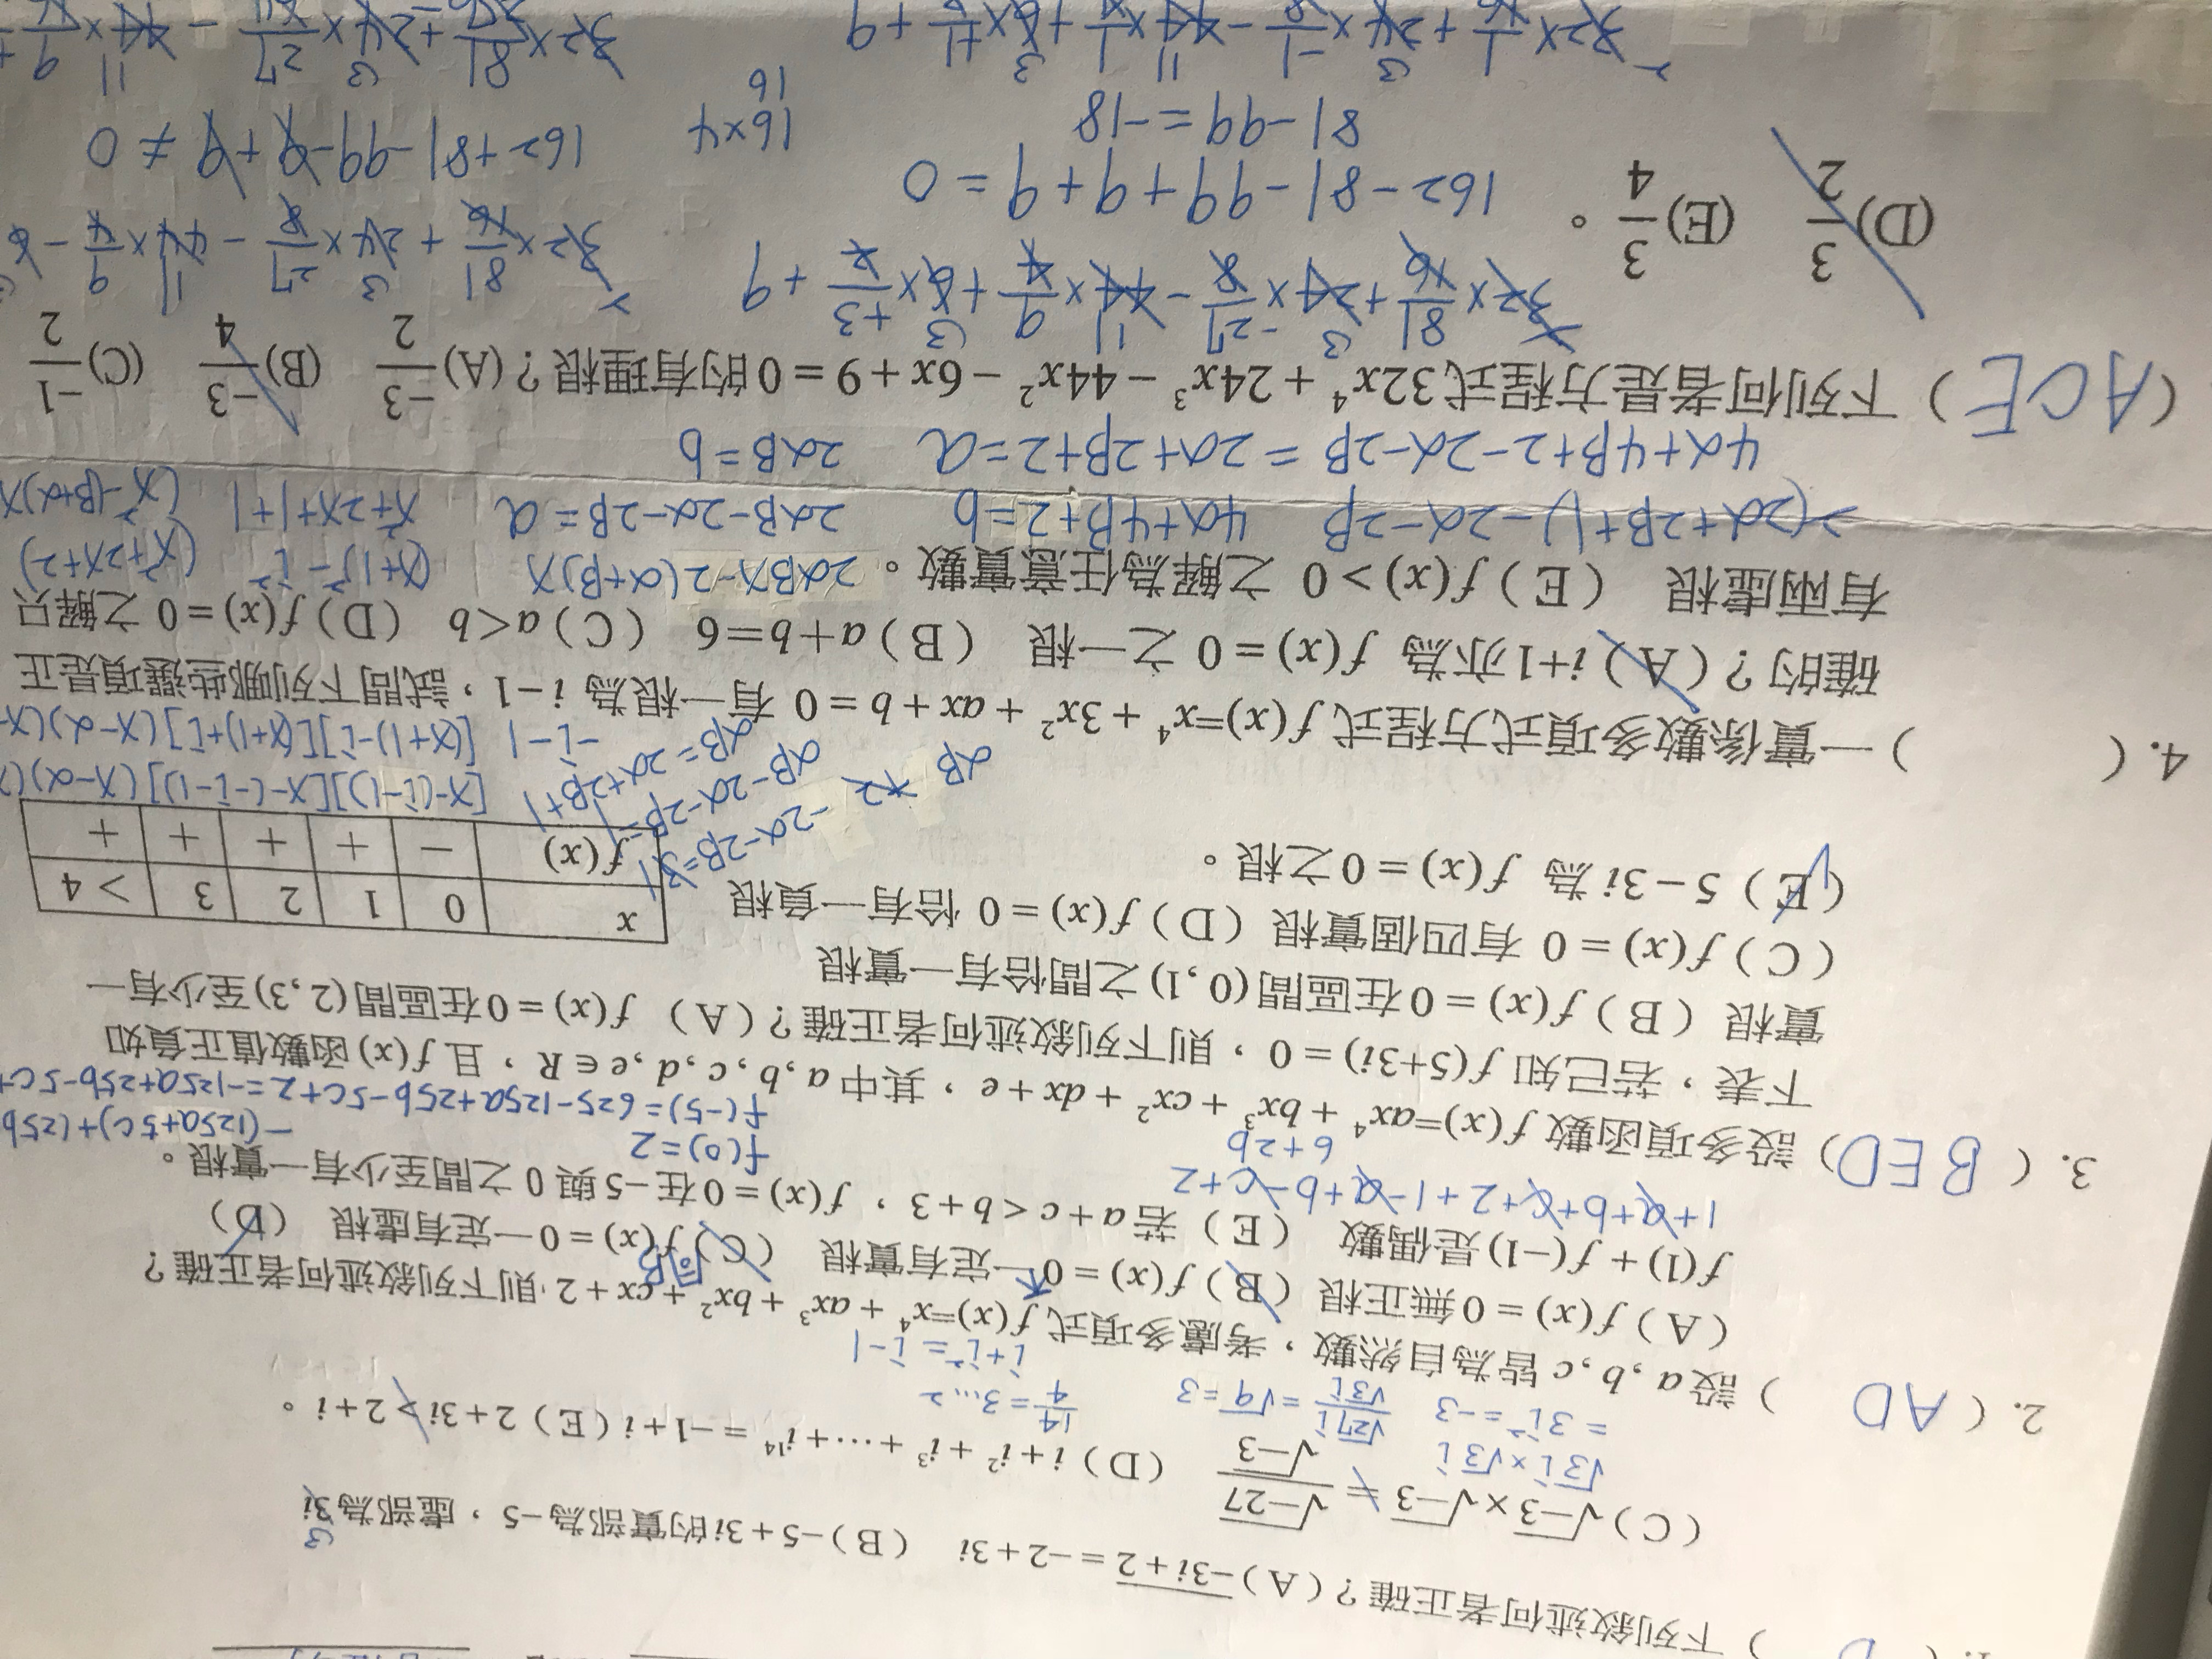 下列敘述何者正確？（A）-3i+2 = -2+3i （B）-5+3i的實部為-5，虛部為3i
3
（C）√-3×√-3 = √-27/√-3 （D）i+i²+i³+⋯⋯+i¹⁴ = -1+i（E）2+3i > 2+i。
√3i×√3i
= 3i² = -3 √27i/√3i = √9 = 3 14/4 = 3…2
i+i² = i-1
2.（AD）設a,b,c皆為自然數，考慮多項式f(x)=x⁴+ax³+bx²+cx+2，則下列敘述何者正確？
（A）f(x)=0無正根（B）f(x)=0一定有實根（C）f(x)=0一定有虛根（D）
f(1)+f(-1)是偶數（E）若a+c<b+3，f(x)=0在-5與0之間至少有一實根。
1+a+b+c+2+1-a+b-c+2
6+2b
f(0)=2
f(-5)=625-125a+25b-5c+2=-125a+25b-5c+
-(125a+5c)+(25b
3.（BED）設多項函數f(x)=ax⁴+bx³+cx²+dx+e，其中a,b,c,d,e∈R，且f(x)函數值正負如
下表，若已知f(5+3i)=0，則下列敘述何者正確？（A）f(x)=0在區間(2,3)至少有一
實根（B）f(x)=0在區間(0,1)之間恰有一實根
（C）f(x)=0有四個實根（D）f(x)=0恰有一負根
（E）5-3i為f(x)=0之根。
x 0 1 2 3 >4
f(x) - + + + +
[x-(i-1)][x-(-i-1)](x-α)(
-i-1 [(x+1)-i][(x+1)+i](x-α)(x-
αβ+2-2α-2β=3
αβ-2α-2β=1
αβ=2α+2β+1
4.（ ）一實係數多項式方程式f(x)=x⁴+3x²+ax+b=0有一根為i-1，試問下列哪些選項是正
確的？（A）i+1亦為f(x)=0之一根（B）a+b=6（C）a<b（D）f(x)=0之解只
有兩虛根（E）f(x)>0之解為任意實數。
2αβx-2(α+β)x (x+1)²-i² (x²+2x+2)
2(2α+2β+1)-2α-2β 4α+4β+2=b 2αβ-2α-2β=a x²+2x+1+1 (x²-(β+α)x
4α+4β+2-2α-2β=2α+2β+2=a 2αβ=b
（ACE）下列何者是方程式32x⁴+24x³-44x²-6x+9=0的有理根？(A) -3/2 (B) -3/4 (C) -1/2
(D) 3/2 (E) 3/4。
32×81/16+24×-27/8-44×9/4+6×+3/2+9
162-81-99+9+9=0
81-99=-18
32×81/16+24×27/8-44×9/4-6
162+81-99-9+9≠0
16×4
16
32×1/16+24×-1/8-44×1/4+6×+1/2+9